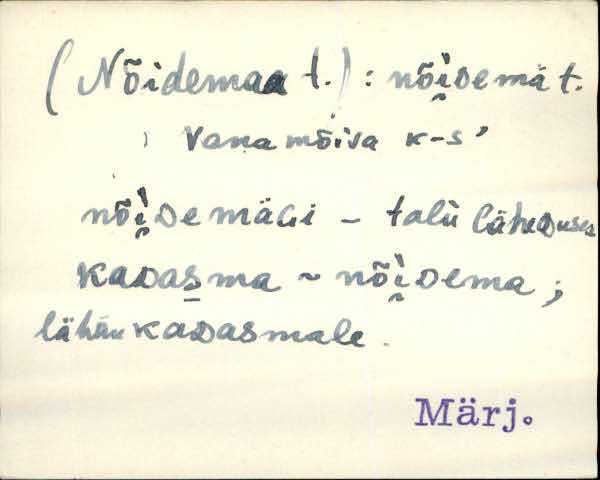 (Nõidemaa t.) : nõì̮Demä t.
, Vanamõiva k-s'
nõì̮DemäGi – talu läheDuses
KaDas̲ma ~ nõì̮Dema ;
lähän KaDasmale.
Märj.